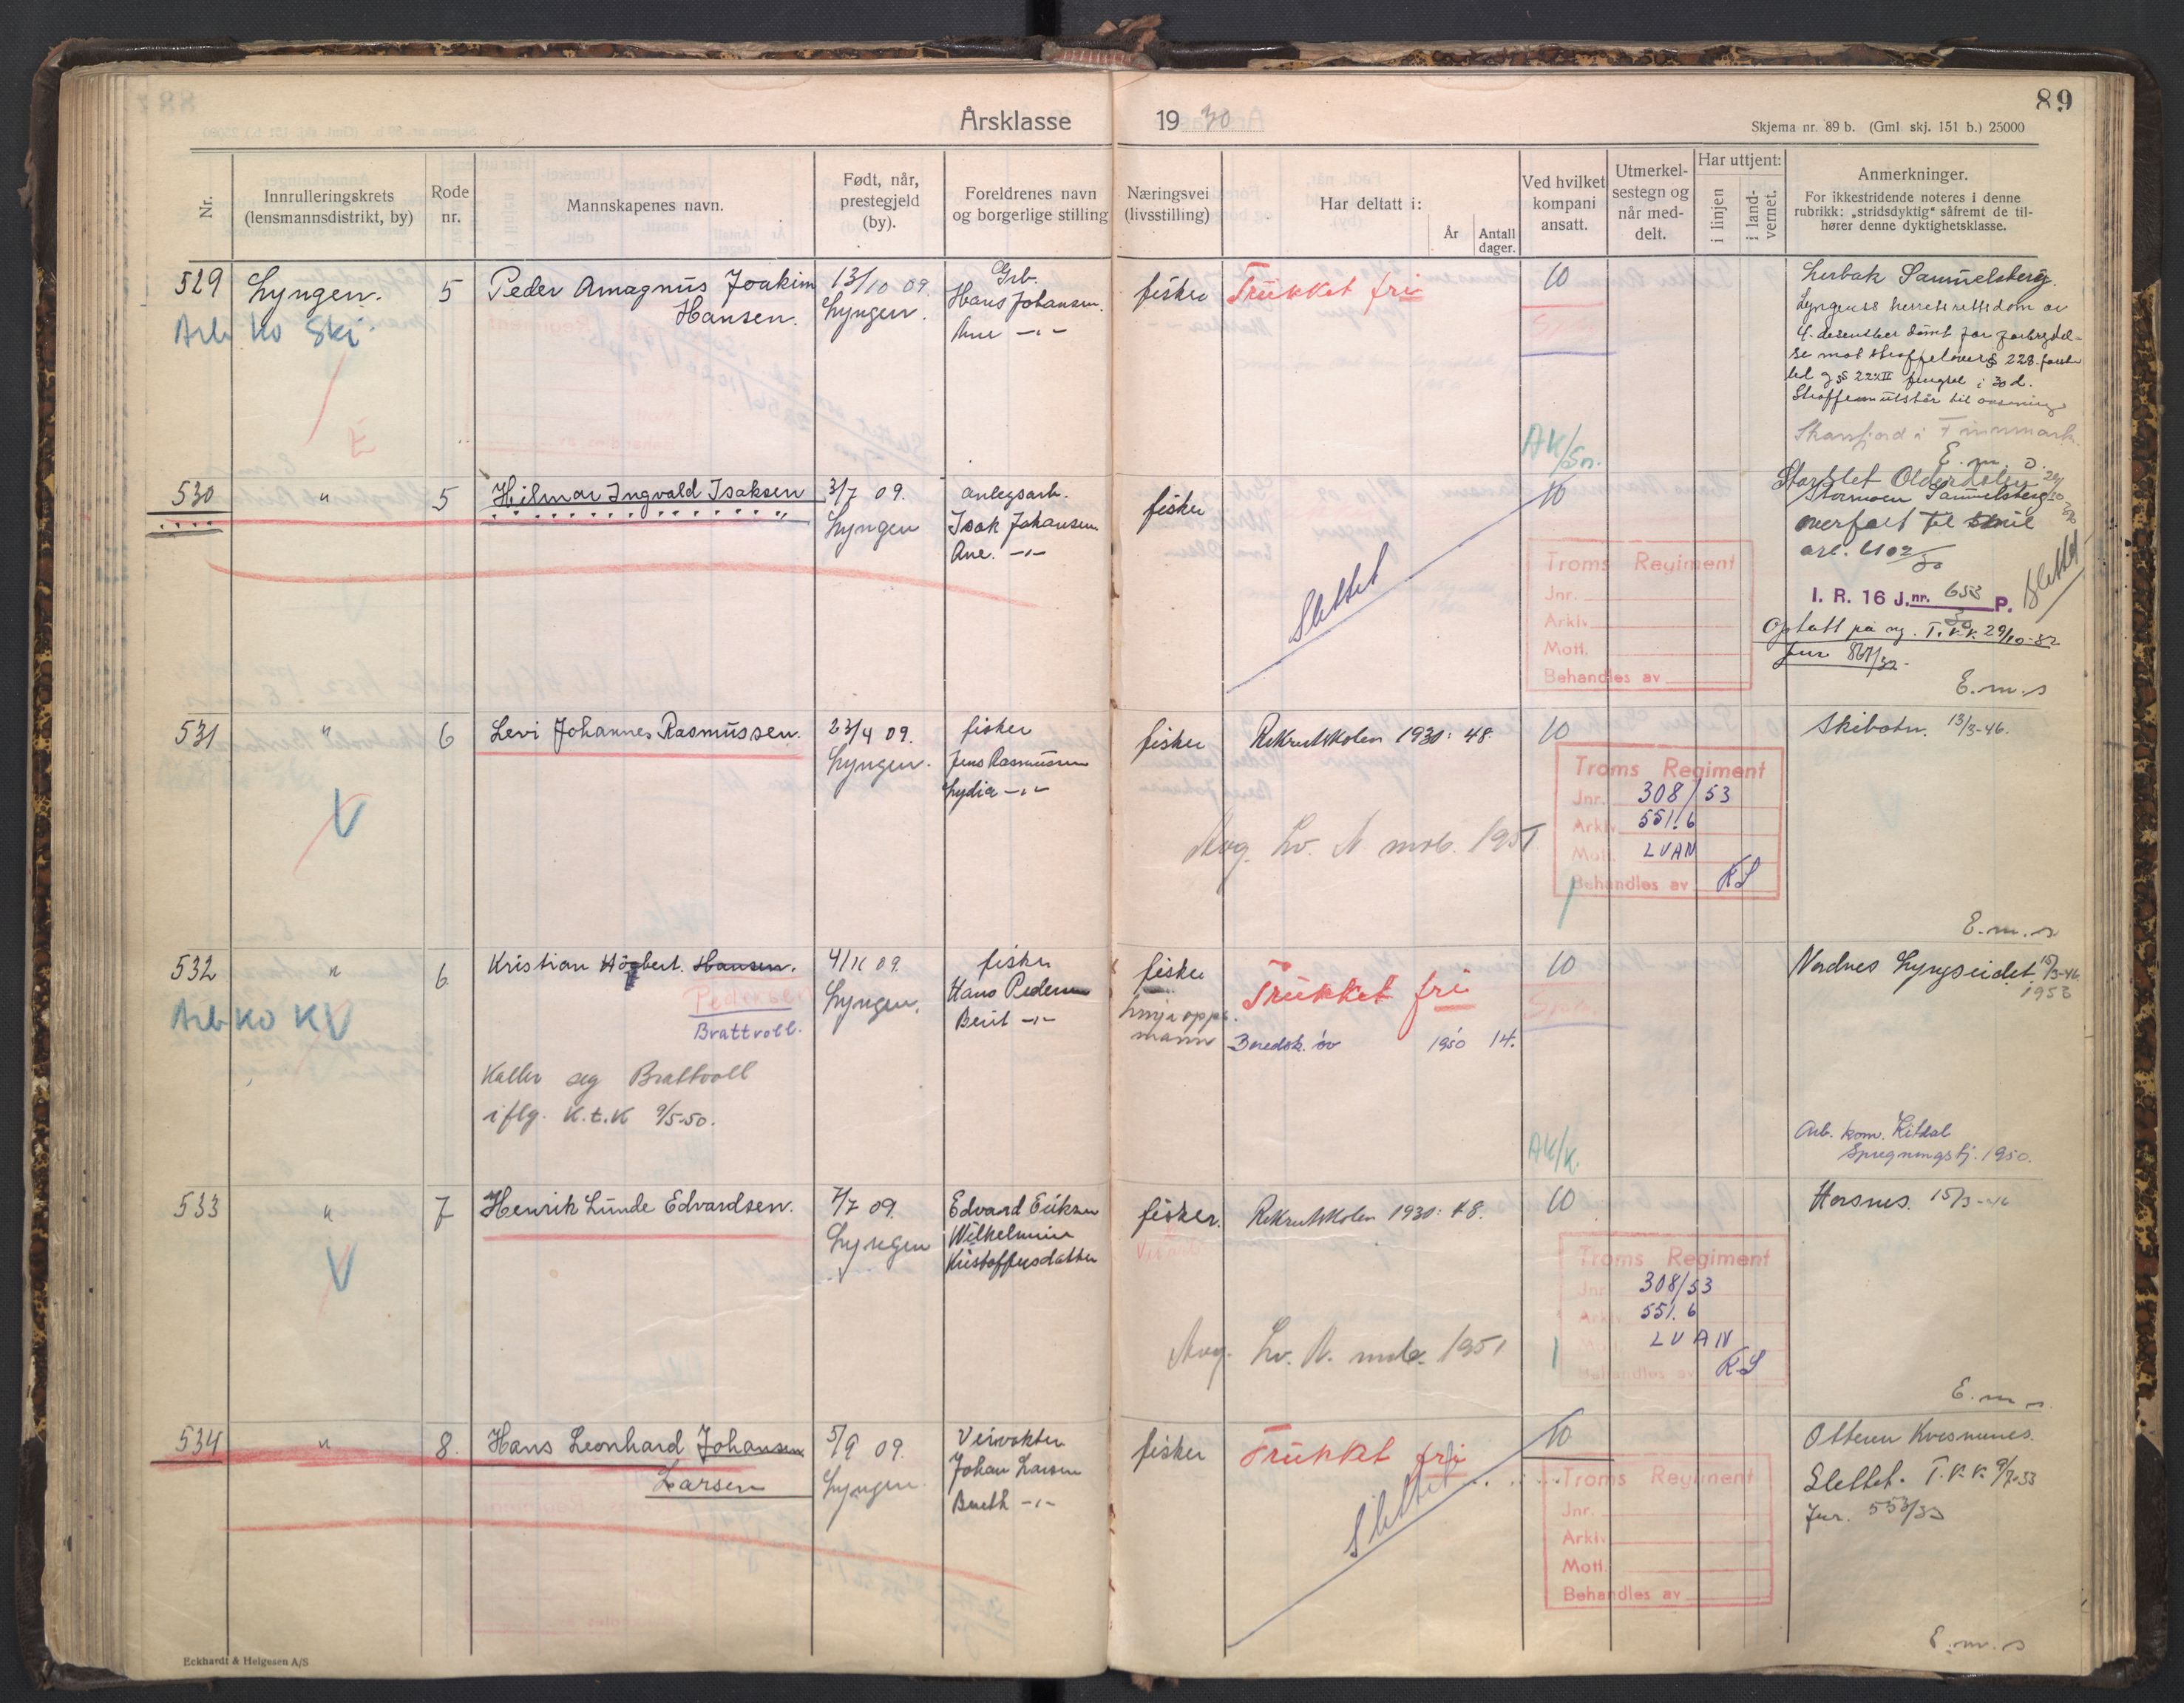 89
Årsklasse 1930
Skjema nr. 89 b. (Gml. skj. 151 b.) 25000
Nr.
Innrulleringskrets
(lensmannsdistrikt, by)
Rode
nr.
Mannskapenes navn.
Født, når,
prestegjeld
(by).
Foreldrenes navn
og borgerlige stilling
Næringsvei
(livsstilling)
Har deltatt i:
År
Antall
dager.
Ved hvilket
kompani
ansatt.
Utmerkel-
sestegn og
når med-
delt.
Har uttjent:
i linjen
i land-
vernet.
Anmerkninger.
For ikkestridende noteres i denne
rubrikk: „stridsdyktig“ såfremt de til-
hører denne dyktighetsklasse.
529 Lyngen. 5 Peder Amagnus Joakim
Hansen.
13/10 09.
Lyngen.
Grb.
Hans Johansen.
Ane -"-
fisker
Trukket fri
10
Arb ko Ski.
E
AK/Sn.
Samuelsberg.
Lyngens herredsrettsdom av
4. desember dømt for forbrydel-
se mot straffelovens § 228
fengsel i 30 d.
i Finnmark.
E. m. s.
530 " 5 Hilmar Ingvald Isaksen
3/7 09.
Lyngen
anlegsarb.
Isak Johansen
Ane. -"-
fisker
10
Slettet
Troms Regiment
Jnr.
Arkiv
Mott.
Behandles av
Olderdalen
Stormoen Samuelsberg
overført til
Slettet
I. R. 16 J.nr. 653 P.
30
Optatt på ny. T.v.k. 29/10-32
Jnr 867/32.
E. m. s
531 " 6 Levi Johannes Rasmussen.
23/4 09.
Lyngen.
fisker
Jens Rasmussen
Lydia -"-
fisker
Rekrutskolen 1930: 48.
10
V
Avg. Lv. N mob. 1951
Troms Regiment
Jnr. 308/53
Arkiv 551.6
Mott. LVAN
Behandles av KS
Skibotn. 13/3-46.
E. m. s
532 " 6 Kristian Høgbert. Hansen.
Pedersen
Brattvoll.
4/11 09.
Lyngen.
fisker
Hans Pedersen
Berit -"-
fisker
Linjeopps.
mann
Trukket fri
Beredsk. öv 1950 14.
10
Arb ko KV
Kaller seg Brattvoll
iflg. K.t.K 9/5-50.
AK/K.
Nordnes Lyngseidet 15/3-46.
1953
Arb. kom. Kitdal
Sprengningstj. 1950.
533 " 7 Henrik Lunde Edvardsen.
7/7 09.
Lyngen
Edvard Eriksen
Wilhelmine
Kristoffersdatter
fisker.
Rekrutskolen 1930: 48.
10
V
Avg. Lv. N. mob. 1951
Troms Regiment
Jnr. 308/53
Arkiv 551.6
LVAN
Behandles av KS
Horsnes. 15/3-46
E. m. s.
534 " 8. Hans Leonhard Johansen
Larsen
5/9 09.
Lyngen.
Veivokter
Johan Larsen
Bereth -"-
fisker
Trukket fri
10
Slettet
Troms Regiment
Jnr.
Arkiv
Mott.
Behandles av
Otteren Kvesmenes.
Slettet. T.v.k. 9/7-33
Jnr. 553/33
E. m. s
Eckhardt & Helgesen A/S